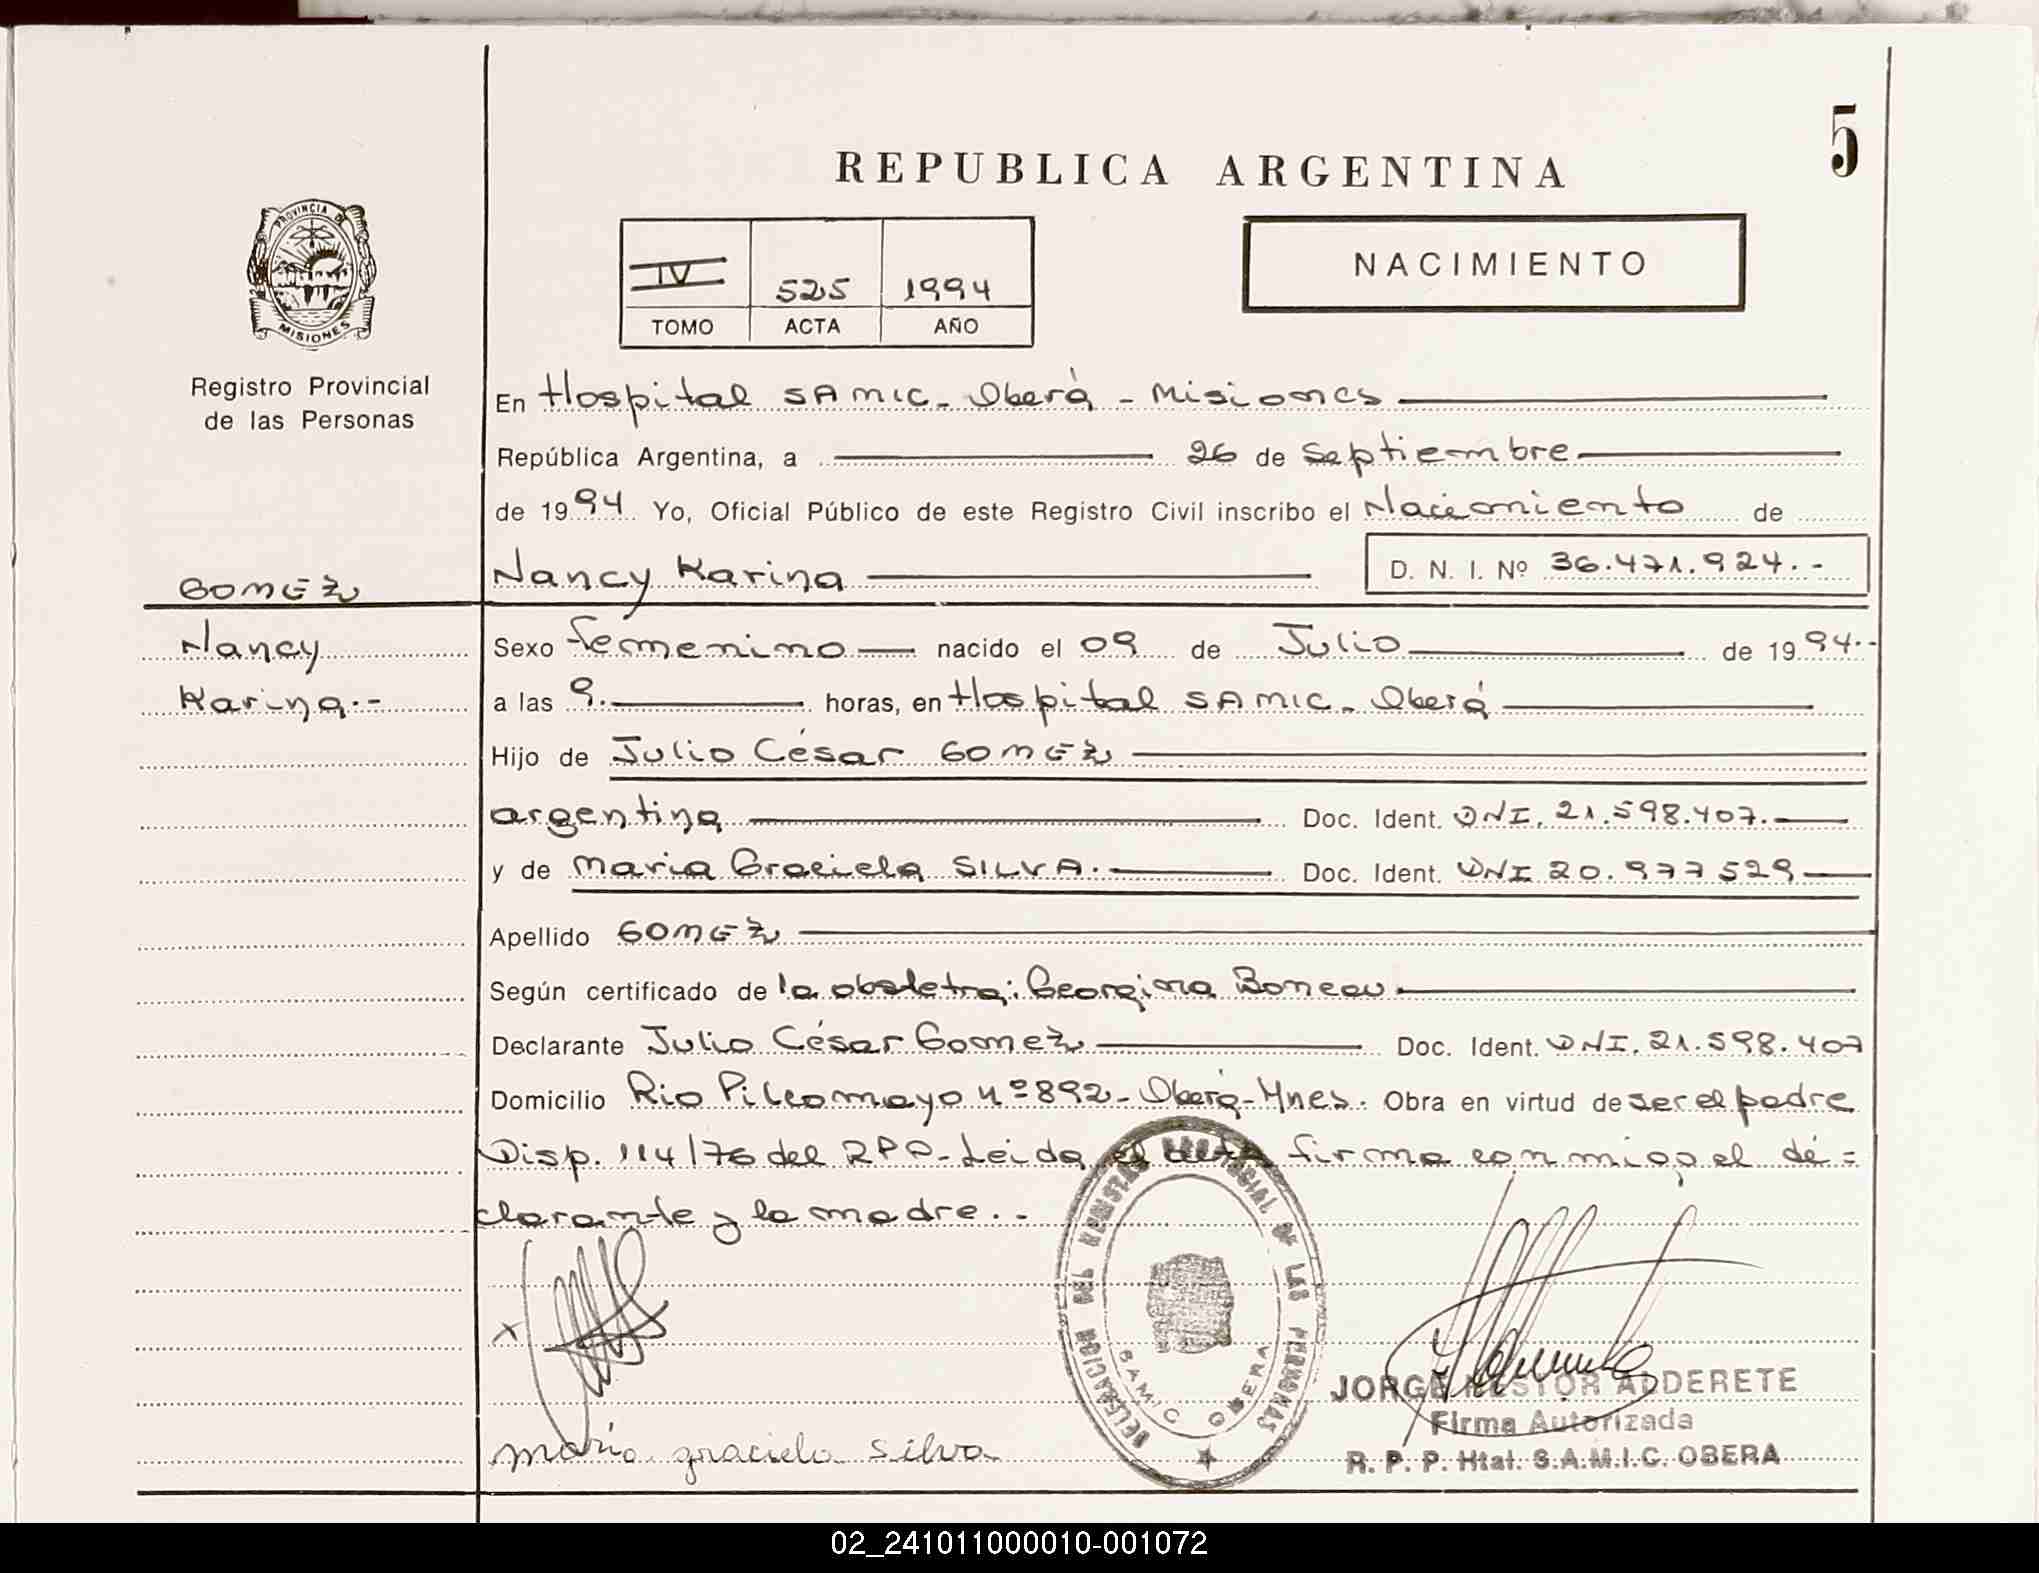 5
REPUBLICA ARGENTINA
PROVINCIA DE
MISIONES
Registro Provincial
de las Personas
IV 525 1994
TOMO ACTA AÑO
NACIMIENTO
En Hospital SAMIC - Oberá - Misiones
República Argentina, a 26 de Septiembre
de 1994 Yo, Oficial Público de este Registro Civil inscribo el Nacimiento de
Nancy Karina D. N. I. Nº 36.471.924.-
GOMEZ
Nancy
Karina.-
Sexo femenino nacido el 09 de Julio de 1994.-
a las 9. horas, en Hospital SAMIC - Oberá
Hijo de Julio César GOMEZ
argentina Doc. Ident. DNI. 21.598.407.
y de Maria Graciela SILVA. Doc. Ident. DNI 20.977529
Apellido GOMEZ
Según certificado de la obstetra: Georgina Boneau
Declarante Julio César Gomez Doc. Ident. DNI. 21.598.407
Domicilio Rio Pilcomayo nº 892 - Oberá - Mnes. Obra en virtud de ser el padre
Disp. 114/76 del RPP - Leida el acta firma conmigo el de=
clarante y la madre.-
x
maria graciela silva
DELEGACION DEL REGISTRO PROVINCIAL DE LAS PERSONAS
SAMIC OBERA
JORGE NESTOR ALDERETE
Firma Autorizada
R. P. P. Htal. S.A.M.I.C. OBERA
02_241011000010-001072